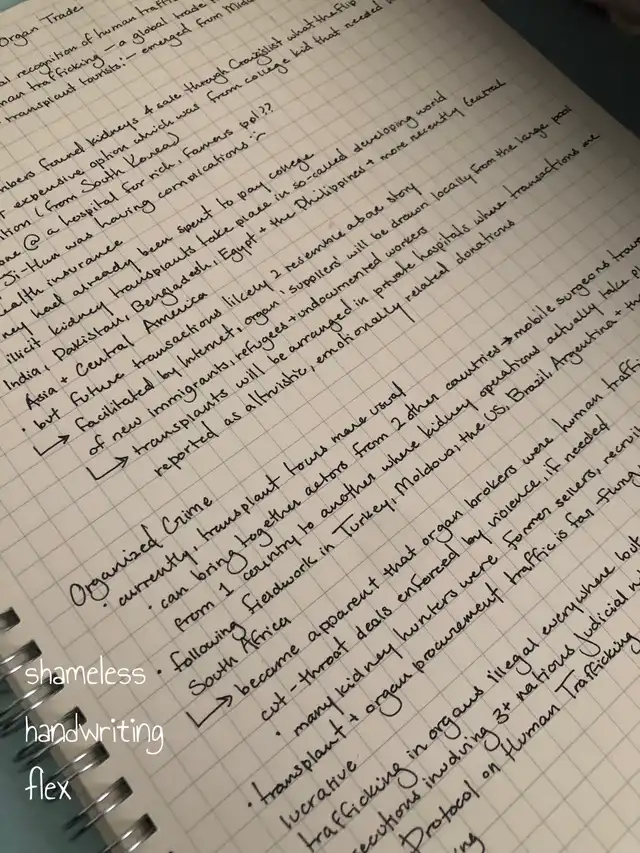 Organ Trade
al recognition of human traffic
man trafficking - a global trade
transplant tourists:- emerged from Midd
mbers found kidneys 4 sale through Craigslist what the flip
r expensive option which was from college kid that needed
ation (from South Korea)
one @ a hospital for rich, famous ppl??
Ji-Hun was having complications :-
ealth insurance
ney had already been spent to pay college
illicit kidney transplants take place in so-called developing world
India, Pakistan, Bengladesh, Egypt + the Philippines + more recently Central
Asia + Central America
· but future transactions likely 2 resemble above story
↳ facilitated by Internet, organ 'suppliers' will be drawn locally from the large pool
of new immigrants, refugees + undocumented workers
↳ transplants will be arranged in private hospitals where transactions are
reported as altruistic, emotionally related donations
Organized Crime
· currently, transplant tours more usual
· can bring together actors from 2 other countries → mobile surgeons trave
from 1 country to another where kidney operations actually take pl
· following fieldwork in Turkey, Moldova, the US, Brazil, Argentina + th
South Africa
↳ became apparent that organ brokers were human traffi
cut-throat deals enforced by violence, if needed
· many kidney hunters were former sellers, recruit
· transplant + organ procurement traffic is far flung
lucrative
trafficking in organs illegal everywhere but
ecutions involving 3+ nations' judicial
Protocol on Human Trafficking
shameless
handwriting
flex